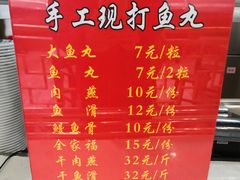 手工现打鱼丸
大鱼丸 7元/粒
鱼丸 7元/2粒
肉燕 10元/份
鱼滑 12元/份
鳗鱼骨 10元/份
全家福 15元/份
干肉燕 32元/斤
干鱼滑 32元/斤